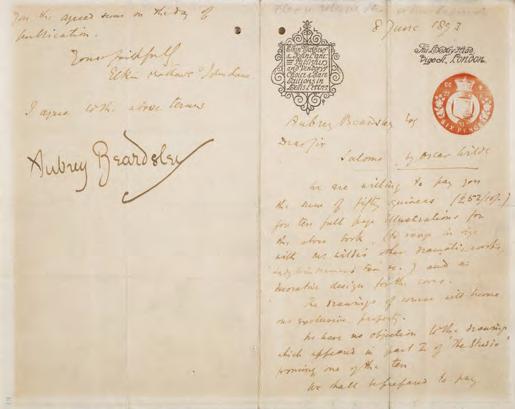 8 June 1893
Elkin Mathews
& John Lane
Publishers
and Vendors
of Choice & Rare
Editions in
Belles Lettres
The Bodley Head,
Vigo St. London.
SIX PENCE
Aubrey Beardsley Esq
Dear Sir
Salome by Oscar Wilde
We are willing to pay you
the sum of fifty guineas (£52/10/-)
for ten full page illustrations for
the above book (to range in size
with Mr Wilde's other dramatic works
) and a
decorative design for the cover.
The drawings of course will become
our exclusive property.
We have no objection to the drawing
which appeared in part I of "The Studio"
forming one of the ten
We shall be prepared to pay
you the agreed sum on the day of
publication.
Yours faithfully
Elkin Mathews & John Lane
I agree to the above terms
Aubrey Beardsley